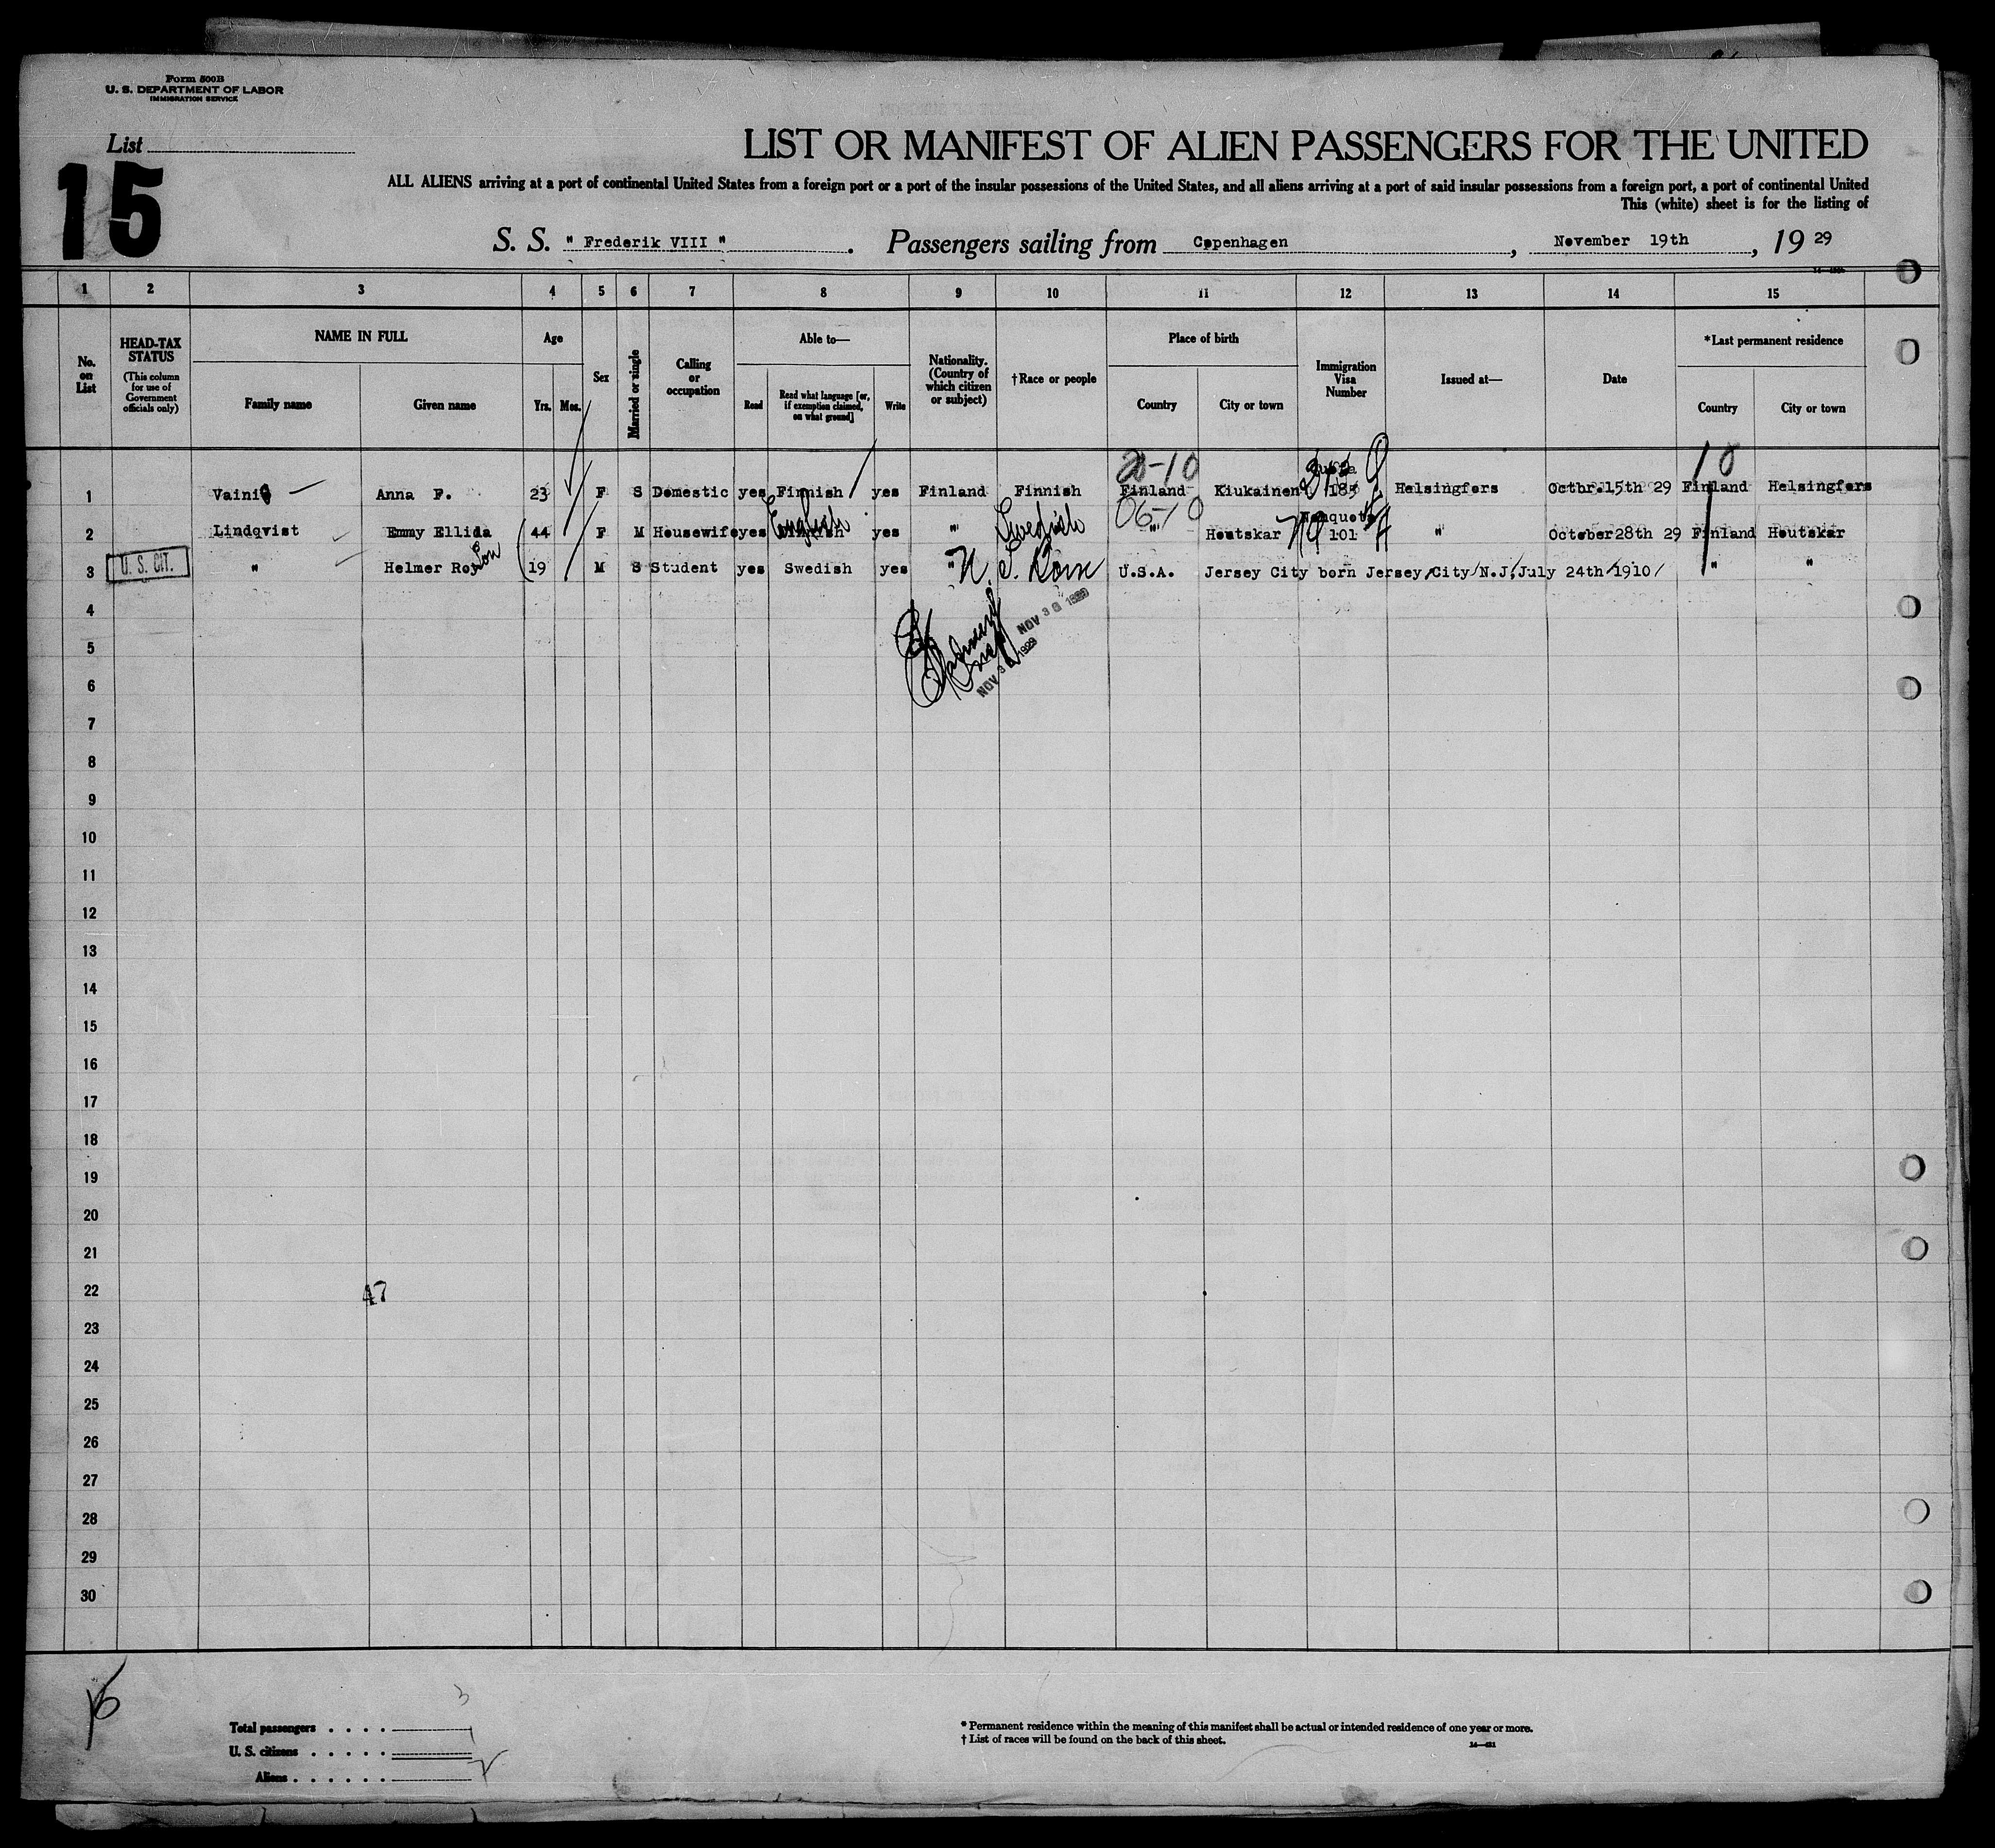 Form 500B
U. S. DEPARTMENT OF LABOR
IMMIGRATION SERVICE
List
15
LIST OR MANIFEST OF ALIEN PASSENGERS FOR THE UNITED
ALL ALIENS arriving at a port of continental United States from a foreign port or a port of the insular possessions of the United States, and all aliens arriving at a port of said insular possessions from a foreign port, a port of continental United
This (white) sheet is for the listing of
S. S. " Frederik VIII " . Passengers sailing from Copenhagen , November 19th , 19 29
1 2 3 4 5 6 7 8 9 10 11 12 13 14 15
No. on List
HEAD-TAX STATUS (This column for use of Government officials only)
NAME IN FULL
Family name Given name
Age
Yrs. Mos.
Sex
Married or single
Calling or occupation
Able to—
Read Read what language [or, if exemption claimed, on what ground] Write
Nationality. (Country of which citizen or subject)
†Race or people
Place of birth
Country City or town
Immigration Visa Number
Issued at—
Date
*Last permanent residence
Country City or town
20-10 10
1 Vainio Anna F. 23 F S Domestic yes Finnish yes Finland Finnish Finland Kiukainen 185 Helsingfors Octbr.15th 29 Finland Helsingfors
06-10
2 Lindqvist Emmy Ellida 44 F M Housewife yes English yes " Swedish " Houtskar 101 " October28th 29 Finland Houtskar
3 U. S. CIT. " Helmer Roy Son 19 M S Student yes Swedish yes " U. S. Born U.S.A. Jersey City born Jersey City N.J. July 24th 1910 " "
NOV 30 1929
NOV 30 1929
4
5
6
7
8
9
10
11
12
13
14
15
16
17
18
19
20
21
22 47
23
24
25
26
27
28
29
30
Total passengers . . . . 3
U. S. citizens . . . . . 1
Aliens . . . . . . 2
* Permanent residence within the meaning of this manifest shall be actual or intended residence of one year or more.
† List of races will be found on the back of this sheet.